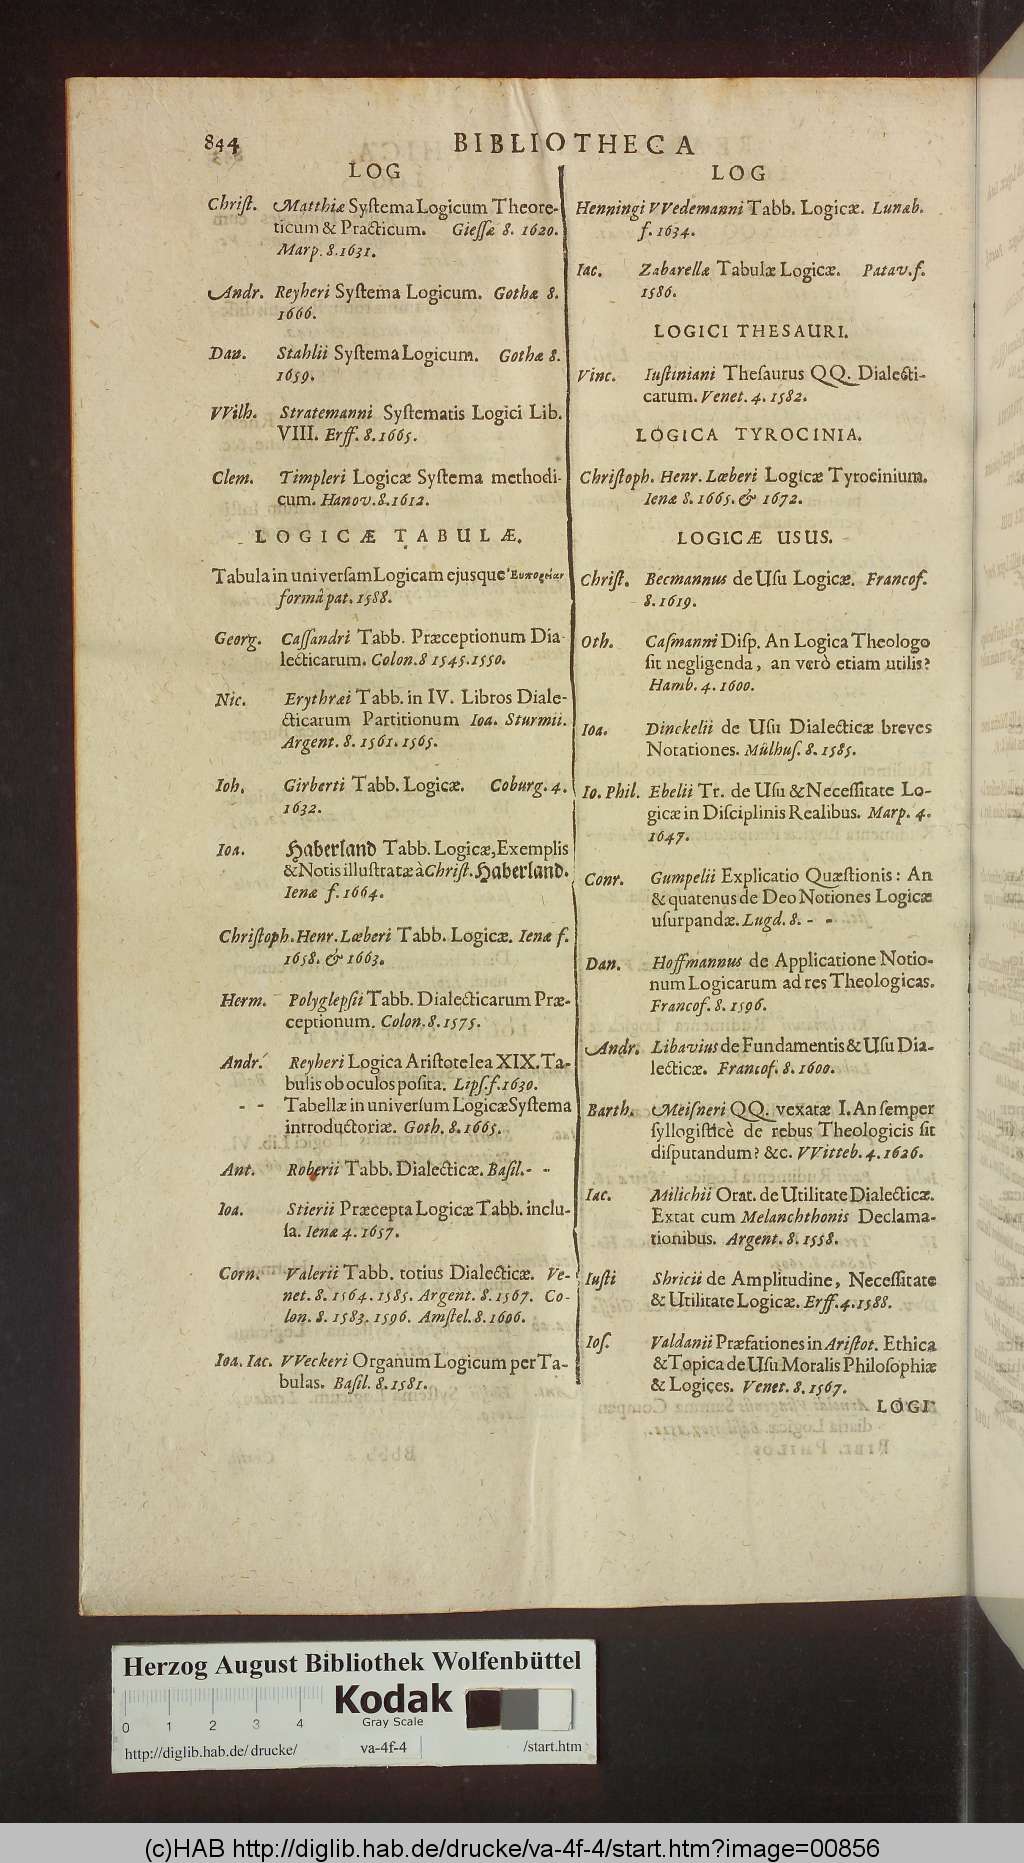 844 BIBLIOTHECA
LOG
Chriſt. Matthiæ Syſtema Logicum Theore-
ticum & Practicum. Gieſſæ 8. 1620.
Marp. 8. 1631.
Andr. Reyheri Syſtema Logicum. Gothæ 8.
1666.
Dan. Stahlii Syſtema Logicum. Gothæ 8.
1659.
VVilh. Stratemanni Syſtematis Logici Lib.
VIII. Erff. 8. 1665.
Clem. Timpleri Logicæ Syſtema methodi-
cum. Hanov. 8. 1612.
LOGICÆ TABULÆ.
Tabula in univerſam Logicam ejusque
formâ pat. 1588.
Georg. Caſſandri Tabb. Præceptionum Dia-
lecticarum. Colon. 8 1545. 1550.
Nic. Erythræi Tabb. in IV. Libros Diale-
cticarum Partitionum Ioa. Sturmii.
Argent. 8. 1561. 1565.
Ioh. Girberti Tabb. Logicæ. Coburg. 4.
1632.
Ioa. Haberland Tabb. Logicæ, Exemplis
& Notis illuſtratæ à Chriſt. Haberland.
Ienæ f. 1664.
Chriſtoph. Henr. Læberi Tabb. Logicæ. Ienæ f.
1658. & 1663.
Herm. Polyglepſii Tabb. Dialecticarum Præ-
ceptionum. Colon. 8. 1575.
Andr. Reyheri Logica Ariſtotelea XIX. Ta-
bulis ob oculos poſita. Lipſ. f. 1630.
- - Tabellæ in univerſum Logicæ Syſtema
introductoriæ. Goth. 8. 1665.
Ant. Roberii Tabb. Dialecticæ. Baſil. - -
Ioa. Stierii Præcepta Logicæ Tabb. inclu-
ſa. Ienæ 4. 1657.
Corn. Valerii Tabb. totius Dialecticæ. Ve-
net. 8. 1564. 1585. Argent. 8. 1567. Co-
lon. 8. 1583. 1596. Amſtel. 8. 1606.
Ioa. Iac. VVeckeri Organum Logicum per Ta-
bulas. Baſil. 8. 1581.
LOG
Henningi VVedemanni Tabb. Logicæ. Lunæb.
f. 1634.
Iac. Zabarellæ Tabulæ Logicæ. Patav. f.
1586.
LOGICI THESAURI.
Vinc. Iuſtiniani Theſaurus QQ. Dialecti-
carum. Venet. 4. 1582.
LOGICA TYROCINIA.
Chriſtoph. Henr. Læberi Logicæ Tyrocinium.
Ienæ 8. 1665. & 1672.
LOGICÆ USUS.
Chriſt. Becmannus de Uſu Logicæ. Francof.
8. 1619.
Oth. Caſmanni Diſp. An Logica Theologo
ſit negligenda, an verò etiam utilis?
Hamb. 4. 1600.
Ioa. Dinckelii de Uſu Dialecticæ breves
Notationes. Mülhuſ. 8. 1585.
Io. Phil. Ebelii Tr. de Uſu & Neceſſitate Lo-
gicæ in Diſciplinis Realibus. Marp. 4.
1647.
Conr. Gumpelii Explicatio Quæſtionis: An
& quatenus de Deo Notiones Logicæ
uſurpandæ. Lugd. 8. - -
Dan. Hoffmannus de Applicatione Notio-
num Logicarum ad res Theologicas.
Francof. 8. 1596.
Andr. Libavius de Fundamentis & Uſu Dia-
lecticæ. Francof. 8. 1600.
Barth. Meiſneri QQ. vexatæ I. An ſemper
ſyllogiſticè de rebus Theologicis ſit
diſputandum? &c. VVitteb. 4. 1626.
Iac. Milichii Orat. de Utilitate Dialecticæ.
Extat cum Melanchthonis Declama-
tionibus. Argent. 8. 1558.
Iuſti Shricii de Amplitudine, Neceſſitate
& Utilitate Logicæ. Erff. 4. 1588.
Ioſ. Valdanii Præfationes in Ariſtot. Ethica
& Topica de Uſu Moralis Philoſophiæ
& Logices. Venet. 8. 1567.
LOGI
Herzog August Bibliothek Wolfenbüttel
Kodak
Gray Scale
0 1 2 3 4
http://diglib.hab.de/drucke/ va-4f-4 /start.htm
(c)HAB http://diglib.hab.de/drucke/va-4f-4/start.htm?image=00856